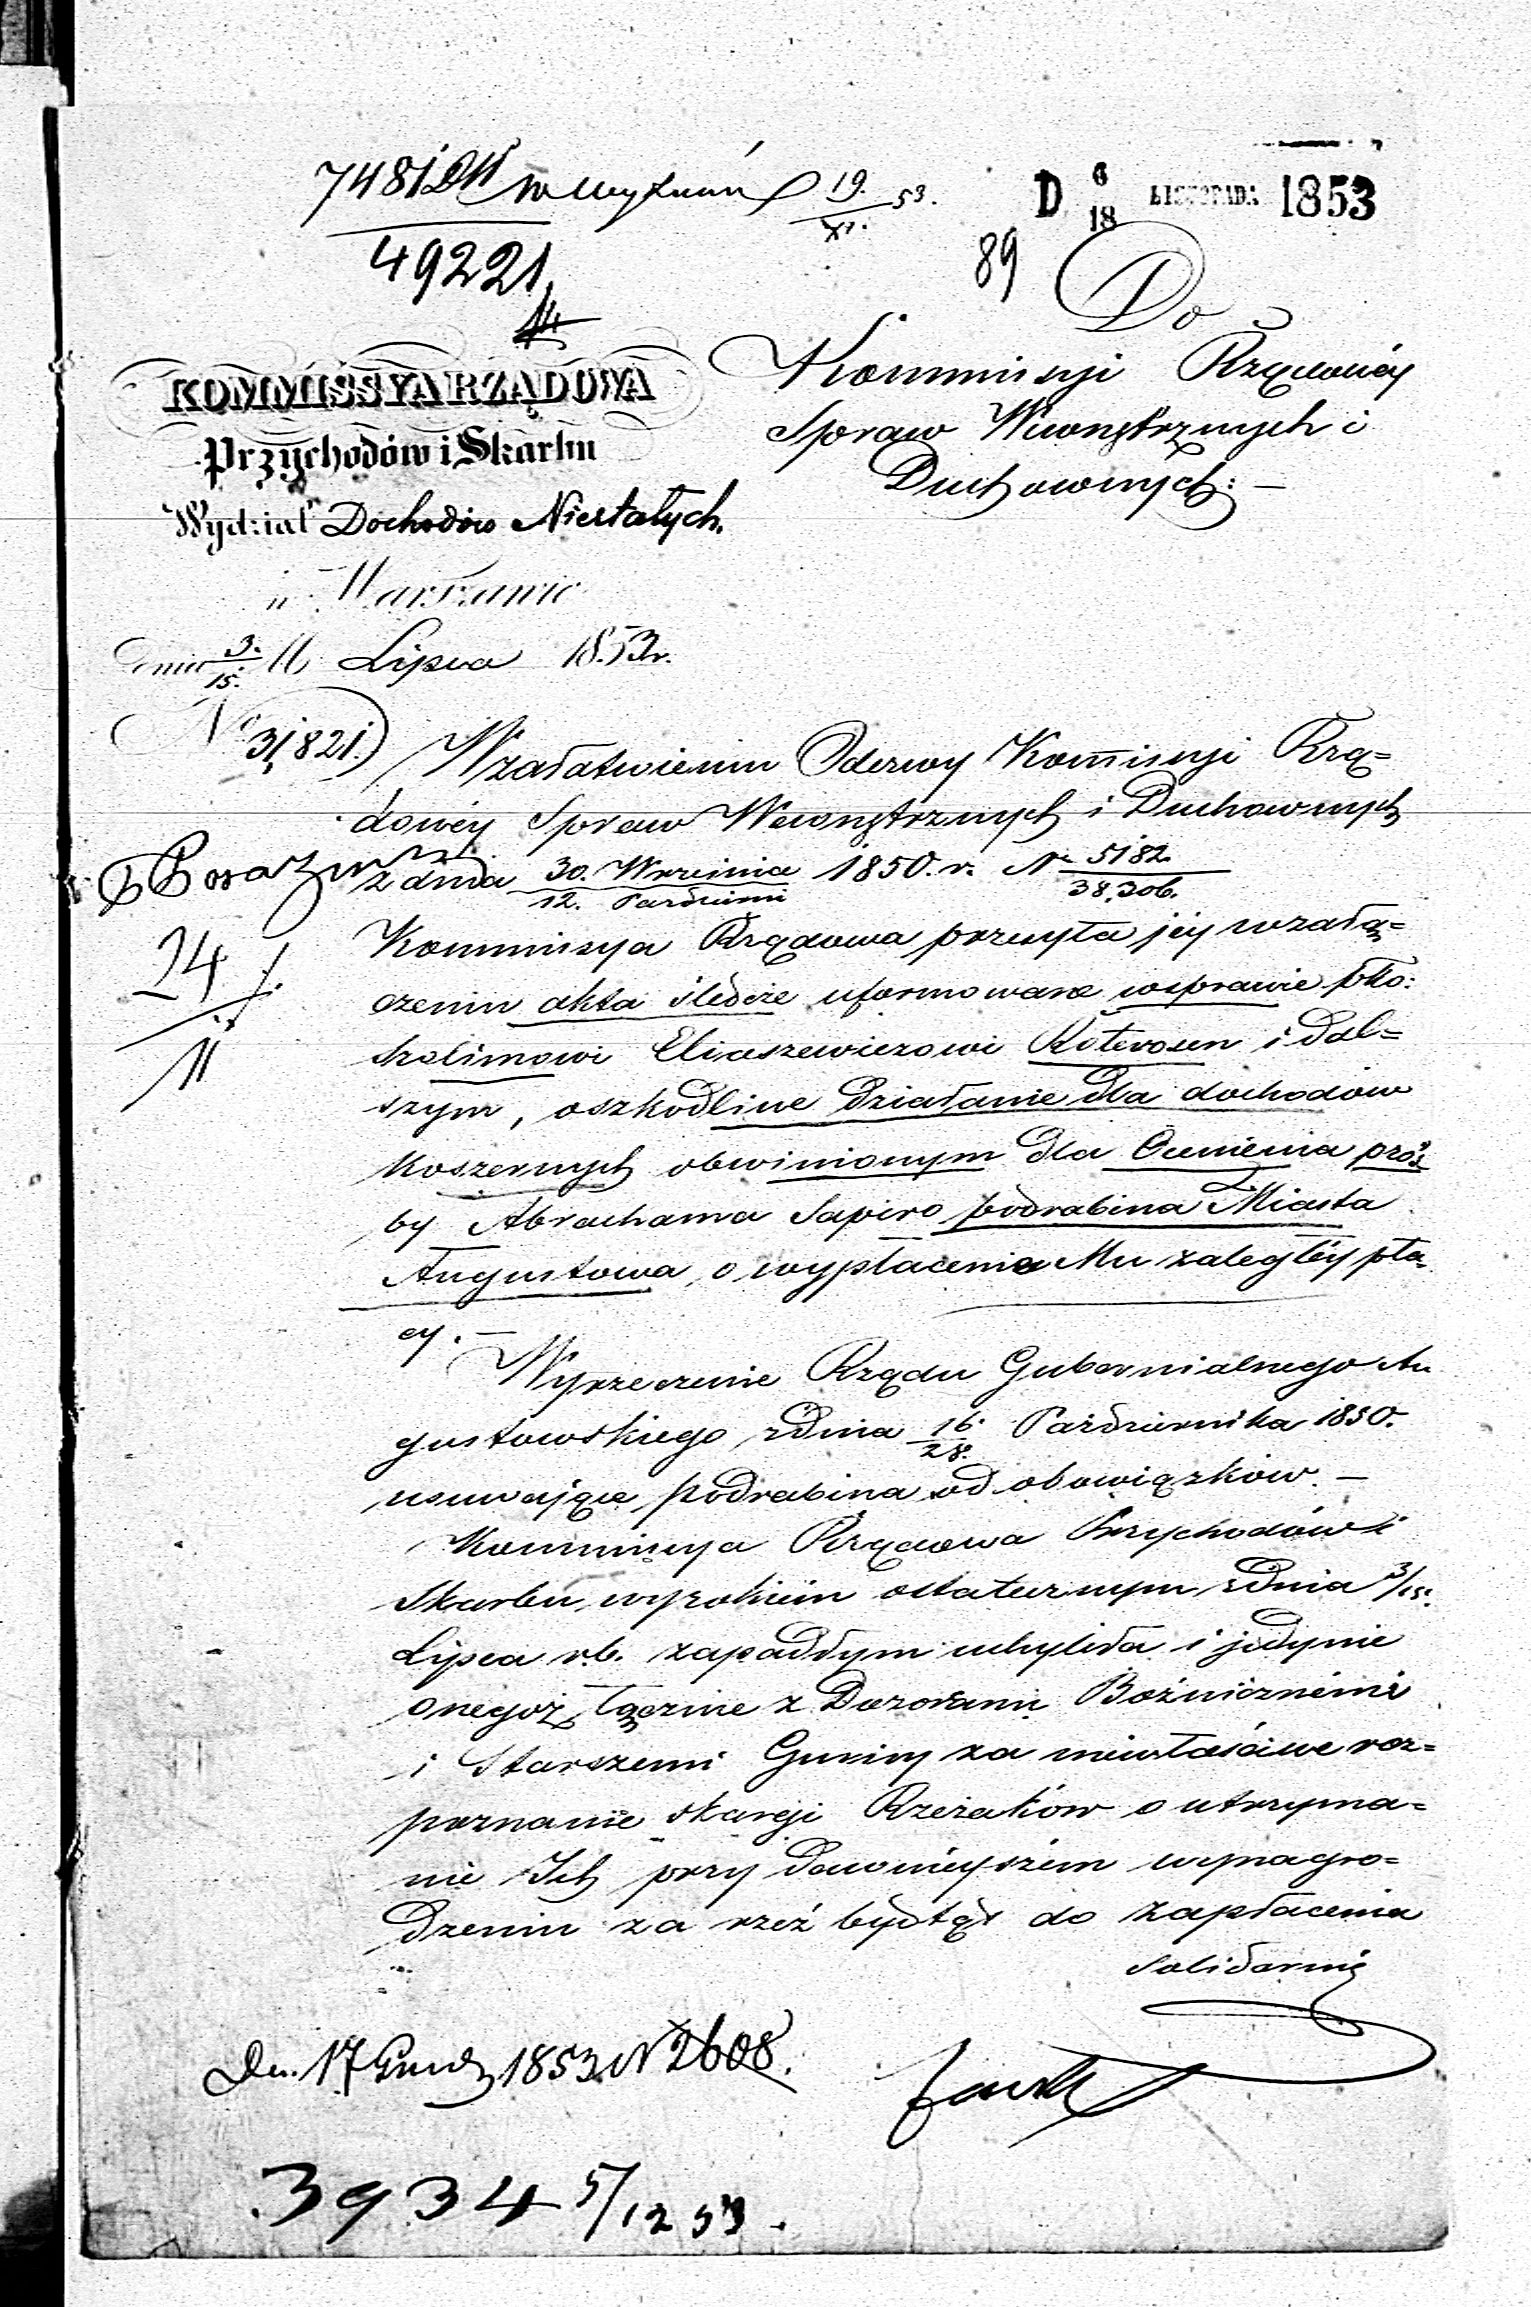 7481 DW
49221
19/XI. 53.
D 6/18 LISTOPADA 1853
89
Do
Kommissyi Rządowéy
Spraw Wewnętrznych i
Duchownych: —
KOMMISSYA RZĄDOWA
Przychodów i Skarbu
Wydział Dochodów Niestałych.
w Warszawie
dnia 3./15. Lipca 1853 r.
No 31,821.
W załatwieniu Odezwy Kommissyi Rzą=
dowéy Spraw Wewnętrznych i Duchownych
z dnia 30. Września/12. Październi 1850. r. No 5182/38,306.
Kommissya Rządowa przesyła jéy w załą=
czeniu akta śledcze uformowane w sprawie pko:
Szolimowi Eliaszewiczowi i dal=
szym, o szkodliwe działanie dla dochodów
koszernych obwinionym dla Ocenienia proś
by Abrachama Sapiro podrabina Miasta
Augustowa, o wypłacenie Mu zaległéy pła
cy. —
Wyrzeczenie Rządu Gubernialnego Au
gustowskiego z dnia 16./28. Października 1850.
usuwające podrabina od obowiązków. —
Kommissya Rządowa Przychodów i
Skarbu wyrokiem ostatecznym z dnia 3/15.
Lipca r.b. zapadłym uchyliła i jedynie
onegoż, łącznie z Dozorami Bożnicznémi
i Starszemi Gminy za niewłaściwe roz=
poznanie skargi Rzezaków o utrzyma=
nie Ich przy dawniéyszém wynagro=
dzeniu za rzeź bydląt do zapłacenia
solidarnie
Dn. 17 Grud 1853 N 2608.
3934 5/12 53.
24/11